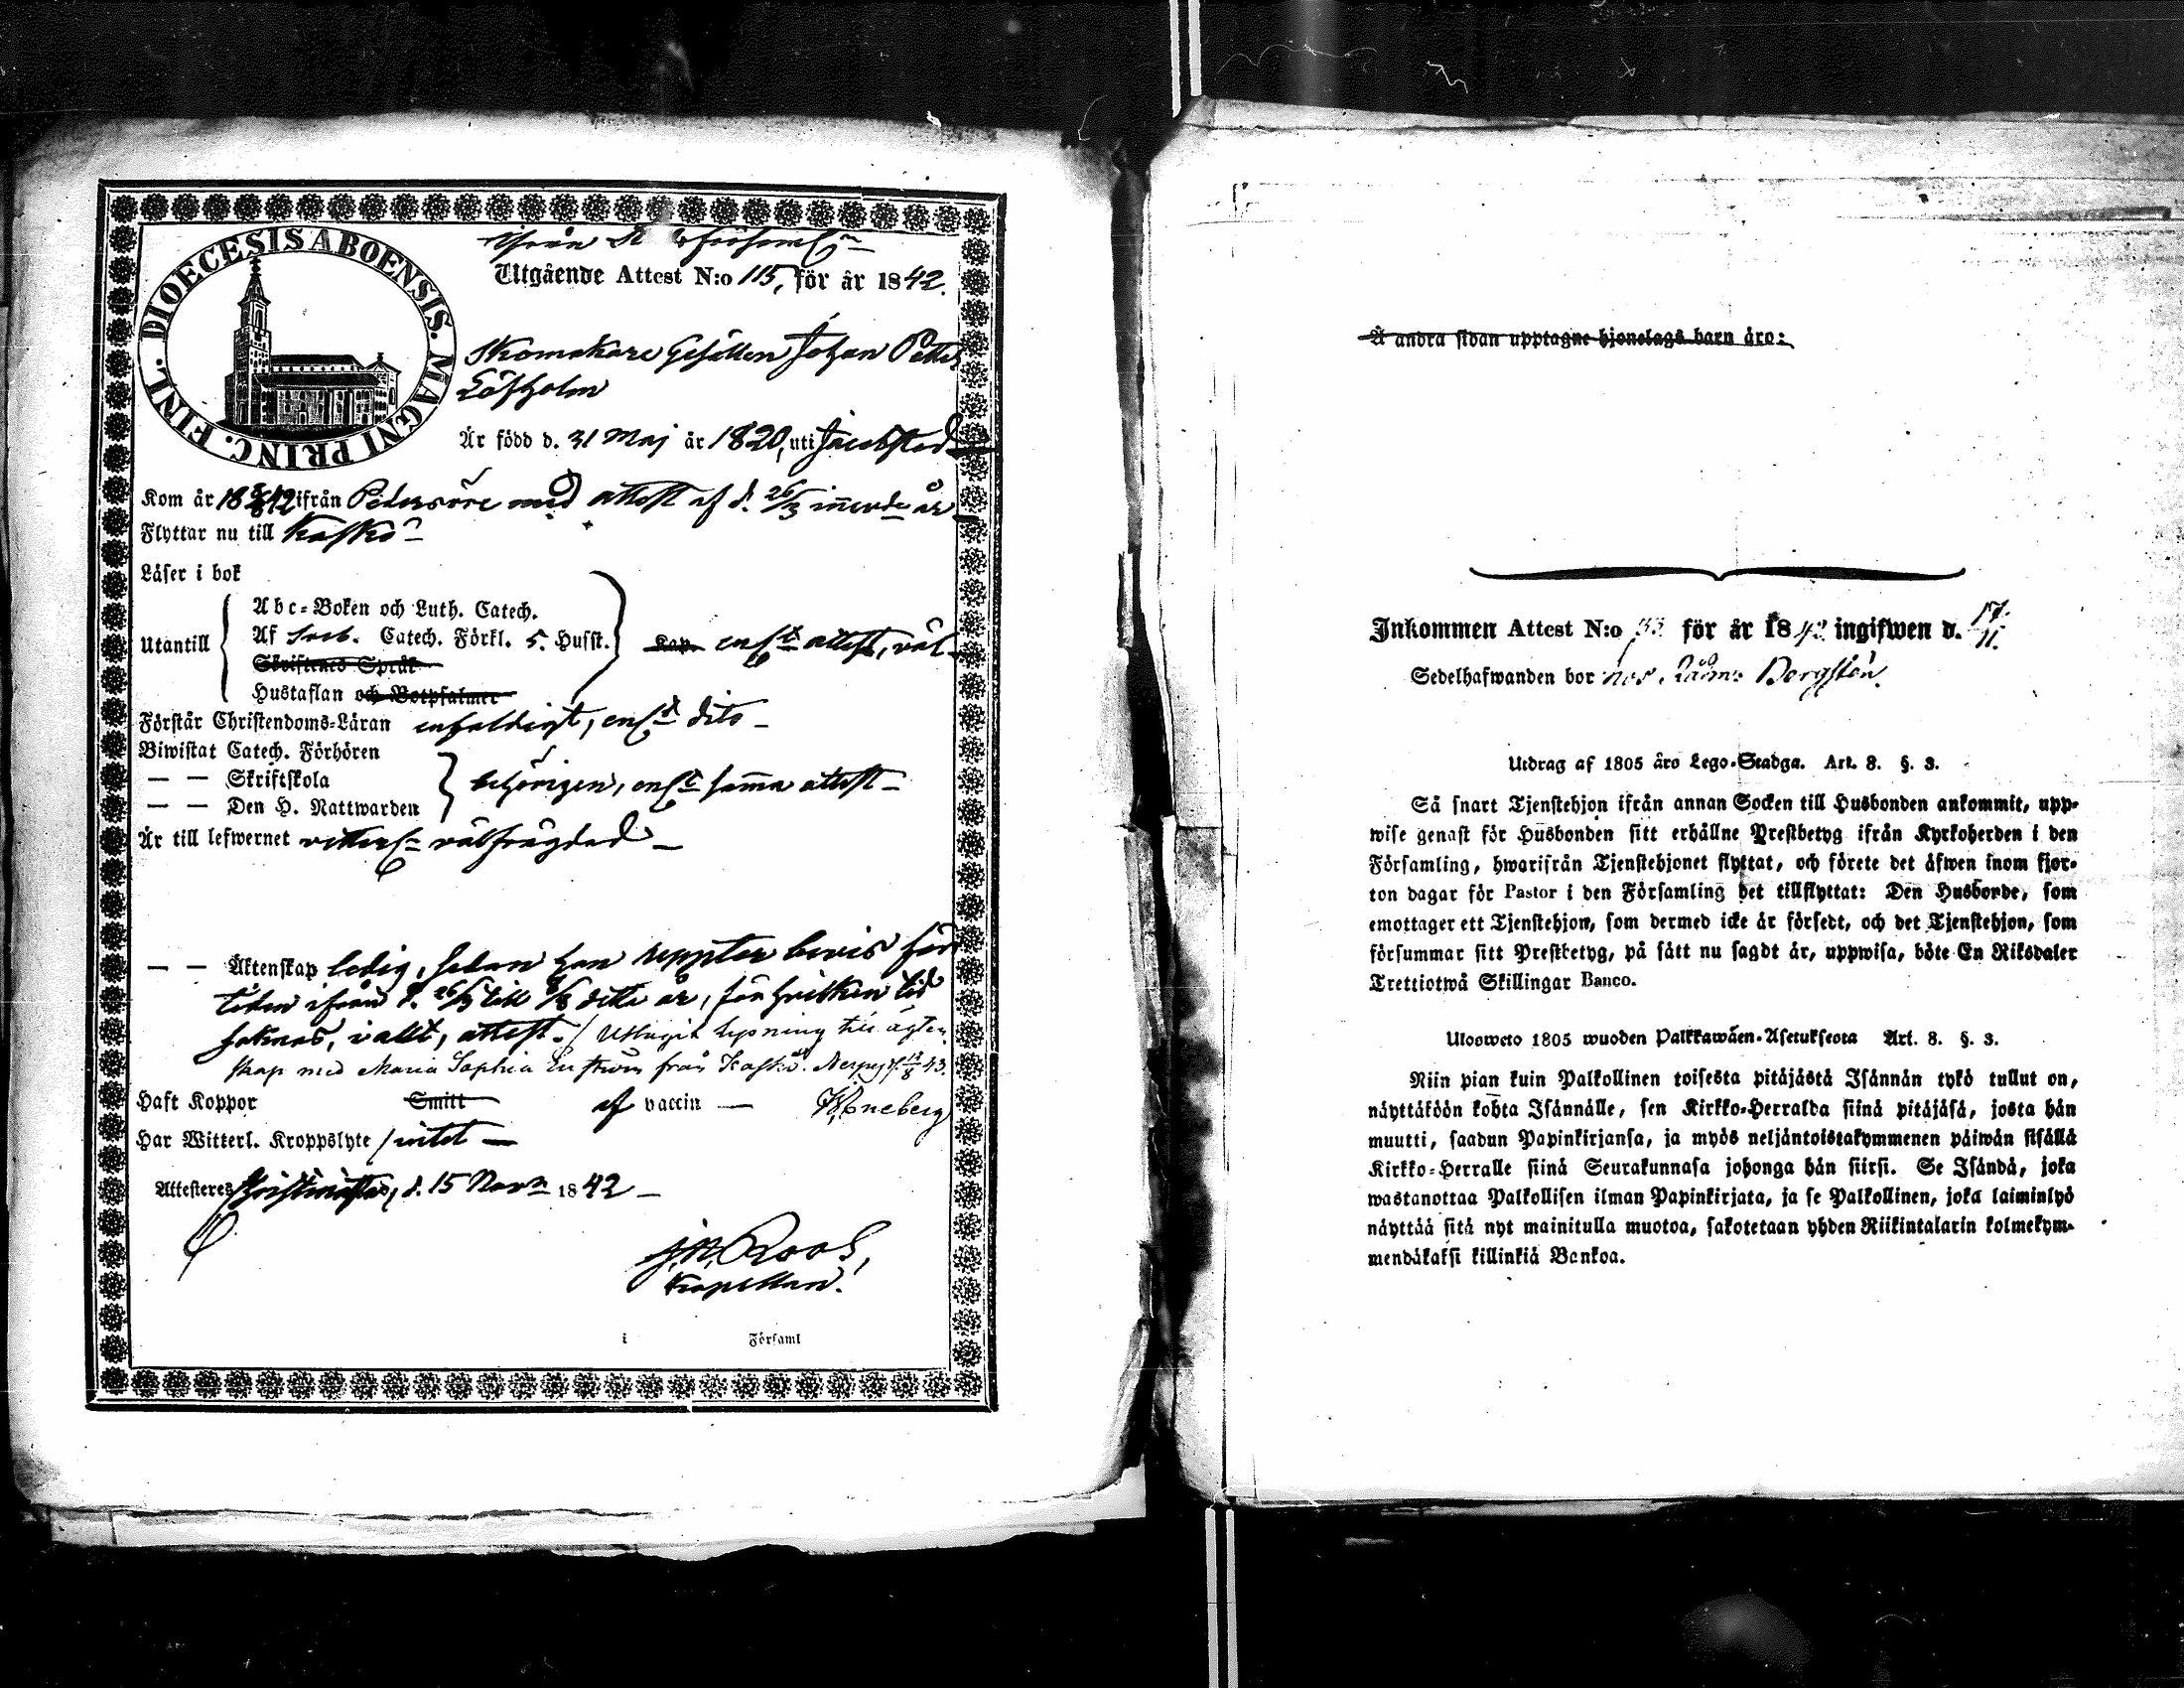 DIOECESIS ABOENSIS. MAGNI PRINC. FINL.
ifrån
Utgående Attest N:o 115, för år 1842.
Skomakare Gesällen Johan Petter
Löfholm
Är född d. 31 Maj år 1820, uti Jacobstad
Kom år 1842 ifrån Pedersöre med attest af d. 26/3 innevde år
Flyttar nu till Kaskö
Läser i bok
Abc-Boken och Luth. Catech.
Utantill Af Catech. Förkl. 5. Husst. Kap. enl. attest, väl
Skriftenes Språk
Hustaflan och Botpsalmer
Förstår Christendoms-Läran enfaldigt, enl. dito
Biwistat Catech. Förhören
— — Skriftskola behörigen, enl. samma attest
— — Den H. Nattwarden
Är till lefwernet vitterl. välfrägdad
— — Äktenskap ledig, sedan han bevis för
tiden ifrån d. 26/3 till detta år, för hvilken tid
saknas, attest. / Uttagit lysning till ägten-
skap med Maria Sophia från Kaskö. 43.
Haft Koppor Smitt af vaccin — Kroneberg
Har Witterl. Kroppslyte intet —
Attesteres Christinæstad, d. 15 Novr 1842
J. N. Roos,
Kapellan.
i Församl
Å andra sidan upptagne hjonelags barn äro:
Inkommen Attest N:o för år 1842 ingifwen d. 17/11.
Sedelhafwanden bor hos Bergsten.
Utdrag af 1805 års Lego-Stadga. Art. 8. §. 3.
Så snart Tjenstehjon ifrån annan Socken till Husbonden ankommit, upp-
wise genast för Husbonden sitt erhållne Prestbetyg ifrån Kyrkoherden i den
Församling, hwarifrån Tjenstehjonet flyttat, och förete det äfwen inom fjor-
ton dagar för Pastor i den Församling det tillflyttat: Den Husbonde, som
emottager ett Tjenstehjon, som dermed icke är försedt, och det Tjenstehjon, som
försummar sitt Prestbetyg, på sätt nu sagdt är, uppwisa, böte En Riksdaler
Trettiotwå Skillingar Banco.
Ulosweto 1805 wuoden Palkkawäen-Asetuksesta Art. 8. §. 3.
Niin pian kuin Palkollinen toisesta pitäjästä Isännän tykö tullut on,
näyttäköön kohta Isännälle, sen Kirkko-Herralda siinä pitäjäsä, josta hän
muutti, saadun Papinkirjansa, ja myös neljäntoistakymmenen päiwän sisällä
Kirkko-Herralle siinä Seurakunnasa johonga hän siirsi. Se Isändä, joka
wastanottaa Palkollisen ilman Papinkirjata, ja se Palkollinen, joka laiminlyö
näyttää sitä nyt mainitulla muotoa, sakotetaan yhden Riikintalarin kolmekym-
mendäkaksi killinkiä Bankoa.